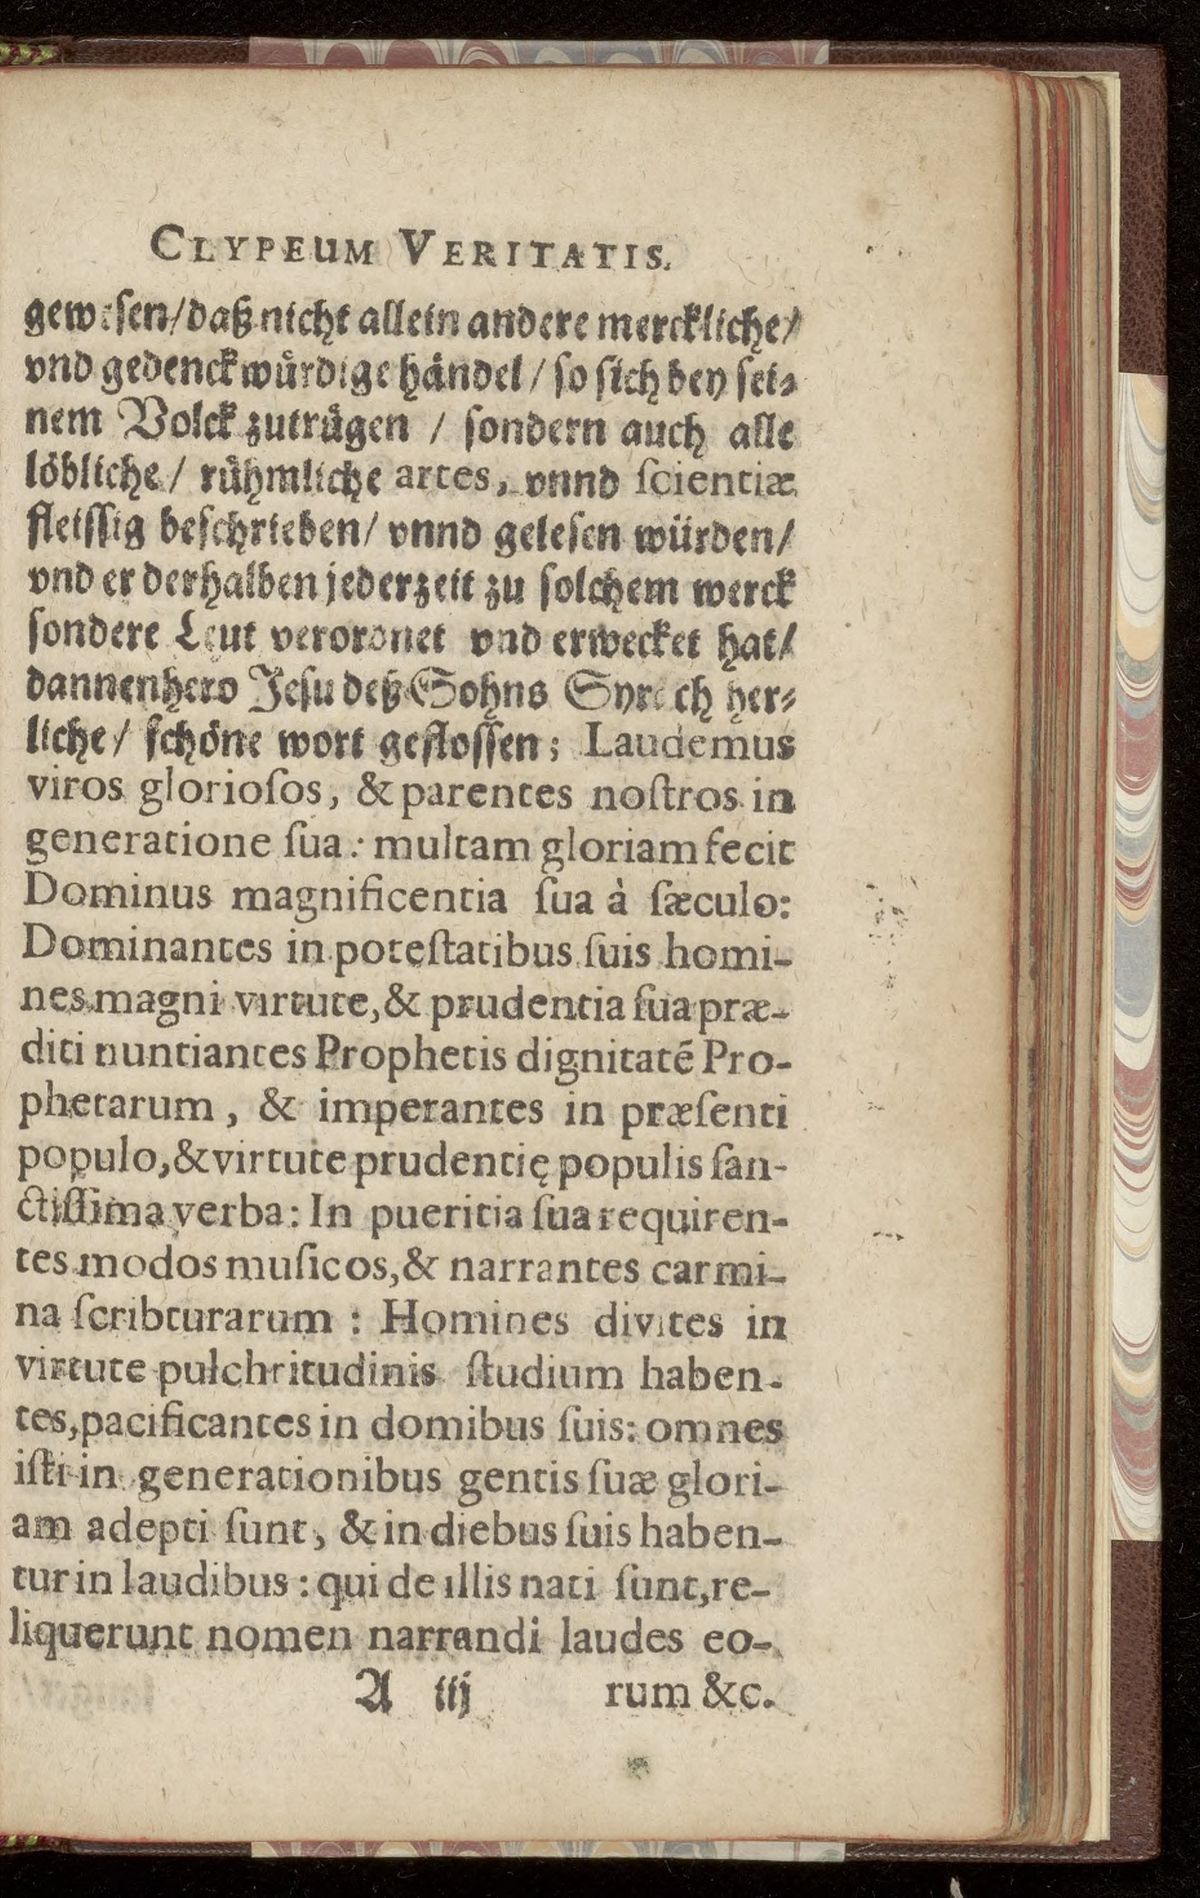 CLYPEUM VERITATIS.
gewesen/daß nicht allein andere merckliche/
vnd gedenckwuͤrdige haͤndel / so sich bey sei⸗
nem Volck zutruͤgen / sondern auch alle
loͤbliche / ruͤhmliche artes, vnnd ſcientiæ
fleissig beschrieben/ vnnd gelesen würden/
vnd er derhalben jederzeit zu solchem werck
sondere Leut verordnet vnd erwecket hat/
dannenhero Jesu deß Sohns Syrach her⸗
liche / schöne wort geflossen; Laudemus
viros glorioſos, & parentes noſtros in
generatione ſua: multam gloriam fecit
Dominus magnificentia ſua à ſæculo:
Dominantes in poteſtatibus ſuis homi-
nes magni virtute, & prudentia ſua præ-
diti nuntiantes Prophetis dignitatē Pro-
phetarum, & imperantes in præſenti
populo, & virtute prudentię populis ſan-
ctiſſima verba: In pueritia ſua requiren-
tes modos muſicos, & narrantes carmi-
na ſcribturarum : Homines divites in
virtute pulchritudinis ſtudium haben-
tes, pacificantes in domibus ſuis: omnes
iſti in generationibus gentis ſuæ glori-
am adepti ſunt, & in diebus ſuis haben-
tur in laudibus : qui de illis nati ſunt, re-
liquerunt nomen narrandi laudes eo-
A iij rum &c.